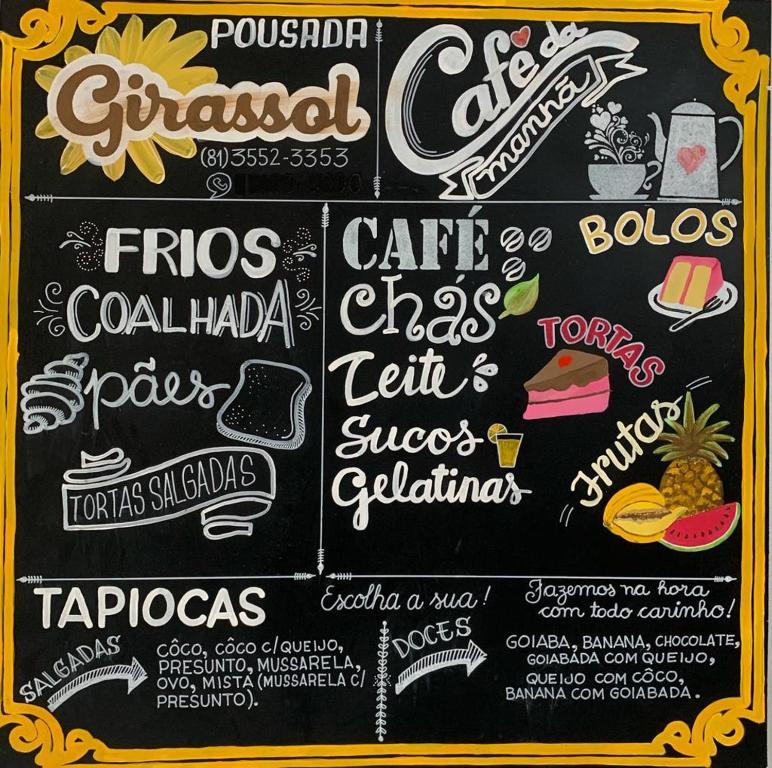 POUSADA
Girassol
(81)3552-3353
Café da
manhã
FRIOS
COALHADA
pães
TORTAS SALGADAS
CAFÉ
chás
Leite
Sucos
Gelatinas
BOLOS
TORTAS
Frutas
TAPIOCAS
Escolha a sua!
Fazemos na hora
com todo carinho!
SALGADAS
CÔCO, CÔCO C/QUEIJO,
PRESUNTO, MUSSARELA,
OVO, MISTA (MUSSARELA C/
PRESUNTO).
DOCES
GOIABA, BANANA, CHOCOLATE,
GOIABADA COM QUEIJO,
QUEIJO COM CÔCO,
BANANA COM GOIABADA.